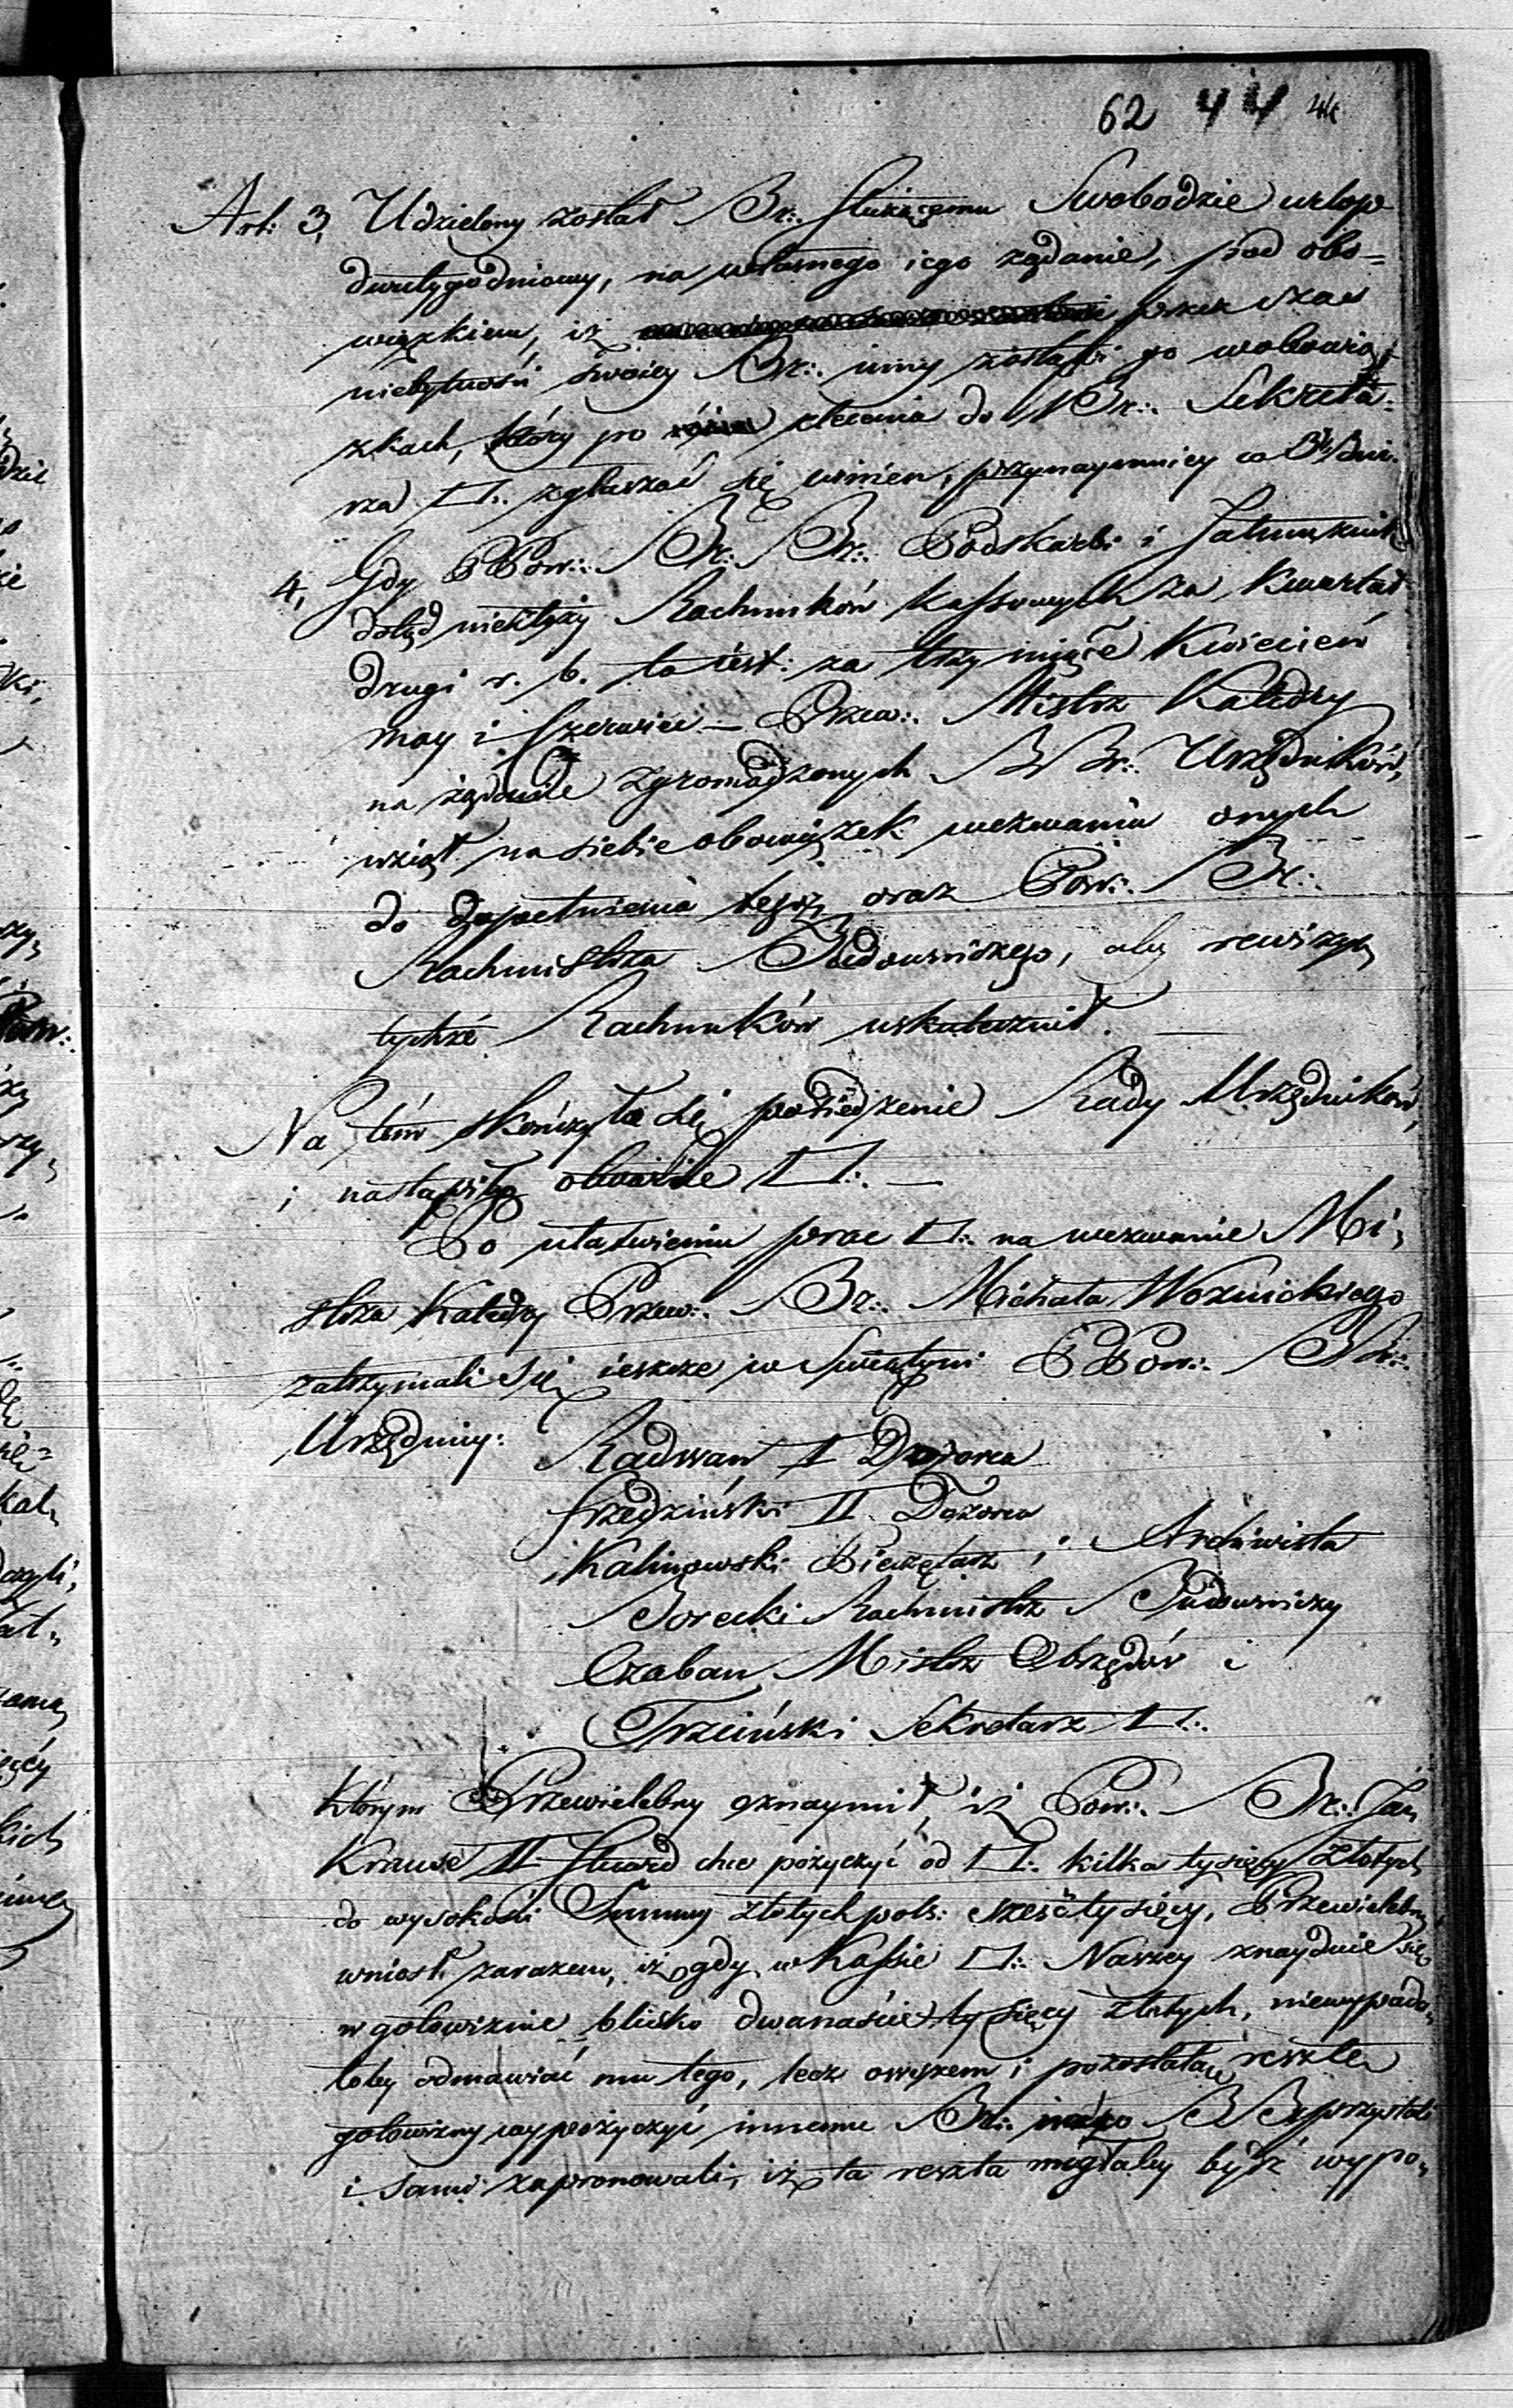 62 44 44
Art: 3, Udzielony został Br∴ Służącemu Swobodzie urlop
dwutygodniowy, na własnego iego żądanie, pod obo=
wiązkiem, iż przez czas
niebytności swoiey Br∴ inny zastąpi go w obowią-
zkach, który po zlecenia do Br∴ Sekreta-
rza □∴ zgłaszać się winien, przynaymniey co 3 dni.
4, Gdy PPow∴ Br∴ Br∴ Podskarbi i Jałmużnik
dotąd niezłożyli Rachunków kassowych za kwartał
drugi r. b. to iest: za trzy miące Kwiecień
may i Czerwiec — Przew∴ Mistrz Katedry
na żądanie zgromadzonych BBr∴ Urzędników,
wziął na siebie obowiązek wezwania onych
do dopełnienia tego, oraz Pow∴ Br∴
Rachmistrza Budowniczego, aby rewizyą
tychże Rachunków uskutecznił. —
Na tém skończyło się posiedzenie Rady Urzędników,
i nastąpiło otwarcie □∴ —
Po ułatwieniu prac □∴ na wezwanie Mi-
strza Katedry Przew∴ Br∴ Michała Woznickiego
zatrzymali się ieszcze w Swiątyni PPow∴ BBr∴
Urzędnicy:
Radwan I Dozorca
Frzedziński II Dozorca
Kalinowski Pieczętarz i Archiwista
Borecki Rachmistrz Budowniczy
Czaban Mistrz Obrzędów i
Trzciński Sekretarz □∴
Którym Przewielebny oznaymił, iż Pow∴ Br∴ Jan
Krause II Stuard chce pożyczyć od □∴ kilka tysięcy złotych
do wysokości Summy złotych pols: sześć tysięcy, Przewielebny
wniosł zarazem, iż gdy w Kassie □∴ Naszey znayduie się
w gotowiznie blisko dwanaście tysięcy złotych, niewypada-
łoby odmawiać mu tego, lecz owszem i pozostałą resztę
gotowizny wypożyczyć innemu Br∴ BBr przystali
i sami zapronowali, iż ta reszta mogłaby być wypo-